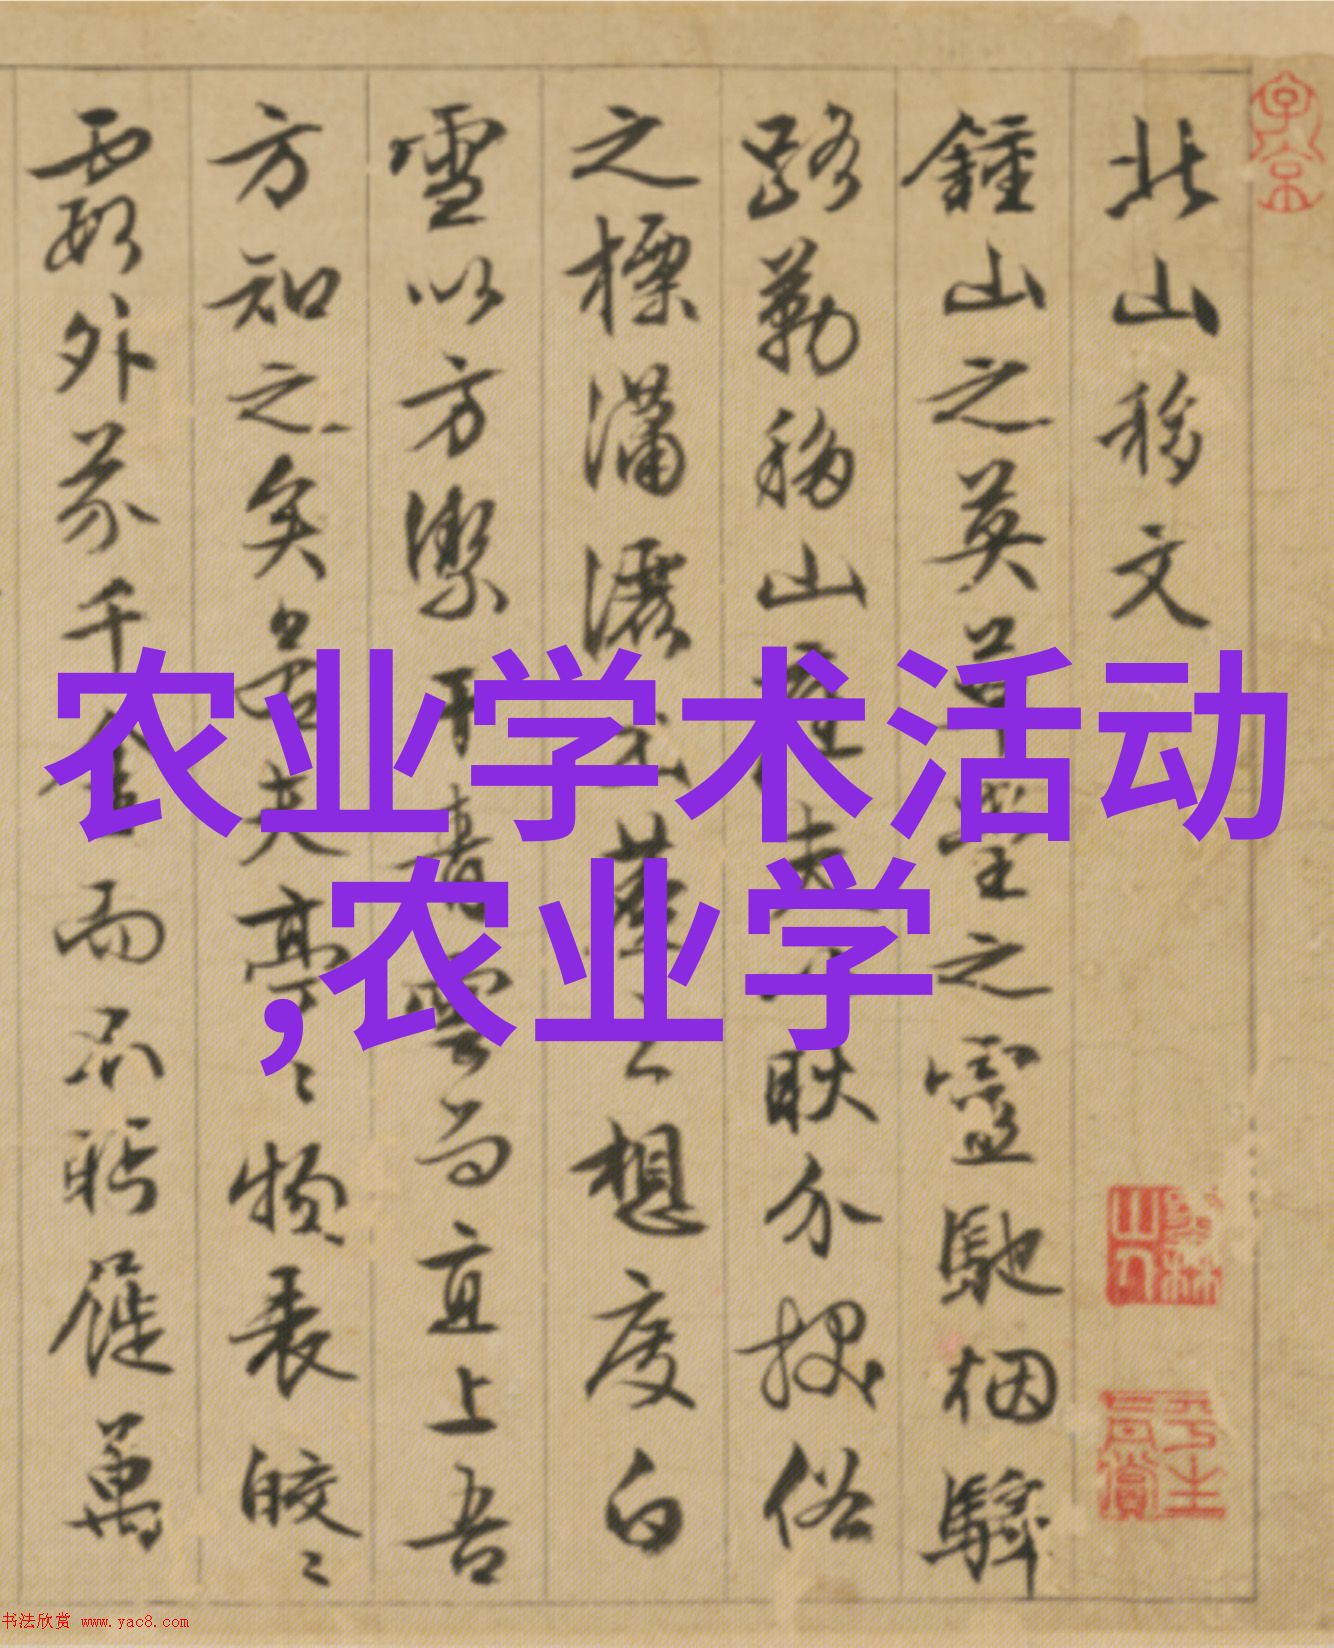 北山移文
鍾山之英草堂之靈馳烟驛
路勒移山庭夫以耿介拔俗
之標瀟灑出塵之想度白
雪以方潔干青雲而直上吾
方知之矣夫亭〻物表皎〻
霞外芥千金而不屣萬
农业学术活动
,农业学
书法欣赏 www.yac8.com